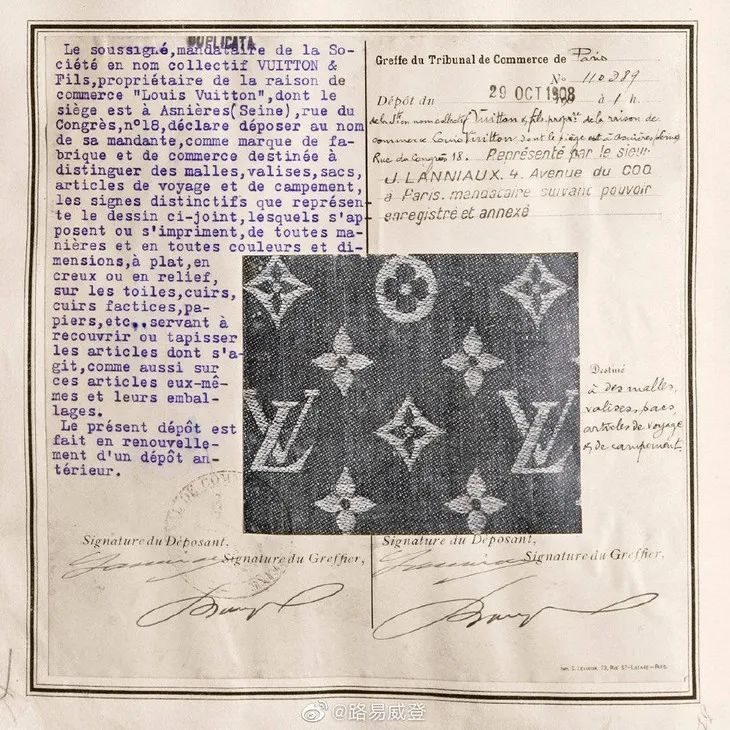 DUPLICATA
Le soussigné,mandataire de la So-
ciété en nom collectif VUITTON &
Fils,propriétaire de la raison de
commerce "Louis Vuitton",dont le
siège est à Asnières(Seine),rue du
Congrès,n°18,déclare déposer au nom
de sa mandante,comme marque de fa-
brique et de commerce destinée à
distinguer des malles,valises,sacs,
articles de voyage et de campement,
les signes distinctifs que représen-
te le dessin ci-joint,lesquels s'ap
posent ou s'impriment,de toutes ma-
nières et en toutes couleurs et di-
mensions,à plat,en
creux ou en relief,
sur les toiles,cuirs,
cuirs factices,pa-
piers,etc..servant à
recouvrir ou tapisser
les articles dont s'a-
git,comme aussi sur
ces articles eux-mê-
mes et leurs embal-
lages.
Le présent dépôt est
fait en renouvelle-
ment d'un dépôt an-
térieur.
Signature du Déposant,
Signature du Greffier,
Greffe du Tribunal de Commerce de Paris
N° 110289
Dépôt du 29 OCT 1908 à 1 h.
de la Sté en nom collectif Vuitton & fils propre de la raison de
commerce Louis Vuitton dont le siège est à Asnières, Seine
Rue du Congrès 18. Représenté par le sieur
J. LANNIAUX. 4. Avenue du COQ
à Paris. mandataire suivant pouvoir
enregistré et annexé
LV
LV
Destiné
à des malles,
valises, sacs,
articles de voyage
et de campement
Signature du Déposant,
Signature du Greffier,
@路易威登